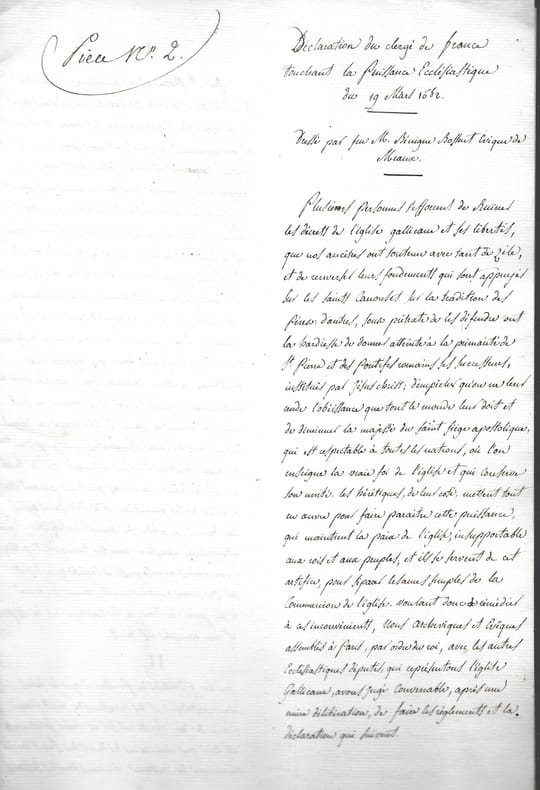 Pièce N.º 2.
Déclaration du clergé de france
touchant la Puissance Ecclésiastique
du 19 Mars 1682.
Dressé par feu M. Bénigne Bossuet Evêque de
Meaux.
Plusieurs personnes s'efforcent de Ruiner
les décrets de l'église gallicane et ses libertés,
que nos ancêtres ont soutenu avec tant de zèle,
et de renverser leurs fondements qui sont appuyés
sur les saints Canons et sur la tradition des
Pères. d'autres, sous prétexte de les défendre ont
la hardiesse de donner atteinte à la primauté de
St. Pierre et des Pontifes romains ses successeurs,
institués par Jésus christ; d'empêcher qu'on ne leur
rende l'obéissance que tout le monde leur doit et
de diminuer la majesté du saint siège apostolique,
qui est respectable à toutes les nations, où l'on
enseigne la vraie foi de l'église et qui conserve
son unité. les hérétiques, de leur coté, mettent tout
en œuvre pour faire paraitre cette puissance,
qui maintient la paix de l'église, insupportable
aux rois et aux peuples, et ils se servent de cet
artifice, pour séparer les ames simples de la
Communion de l'église. voulant donc remédier
à ces inconvénients, Nous archevêques et Evêques
assemblés à Paris, par ordre du roi, avec les autres
Ecclésiastiques députés, qui représentons l'église
Gallicane, avons jugé convenable, après une
mûre délibération, de faire les règlements et la
déclaration qui suivent.